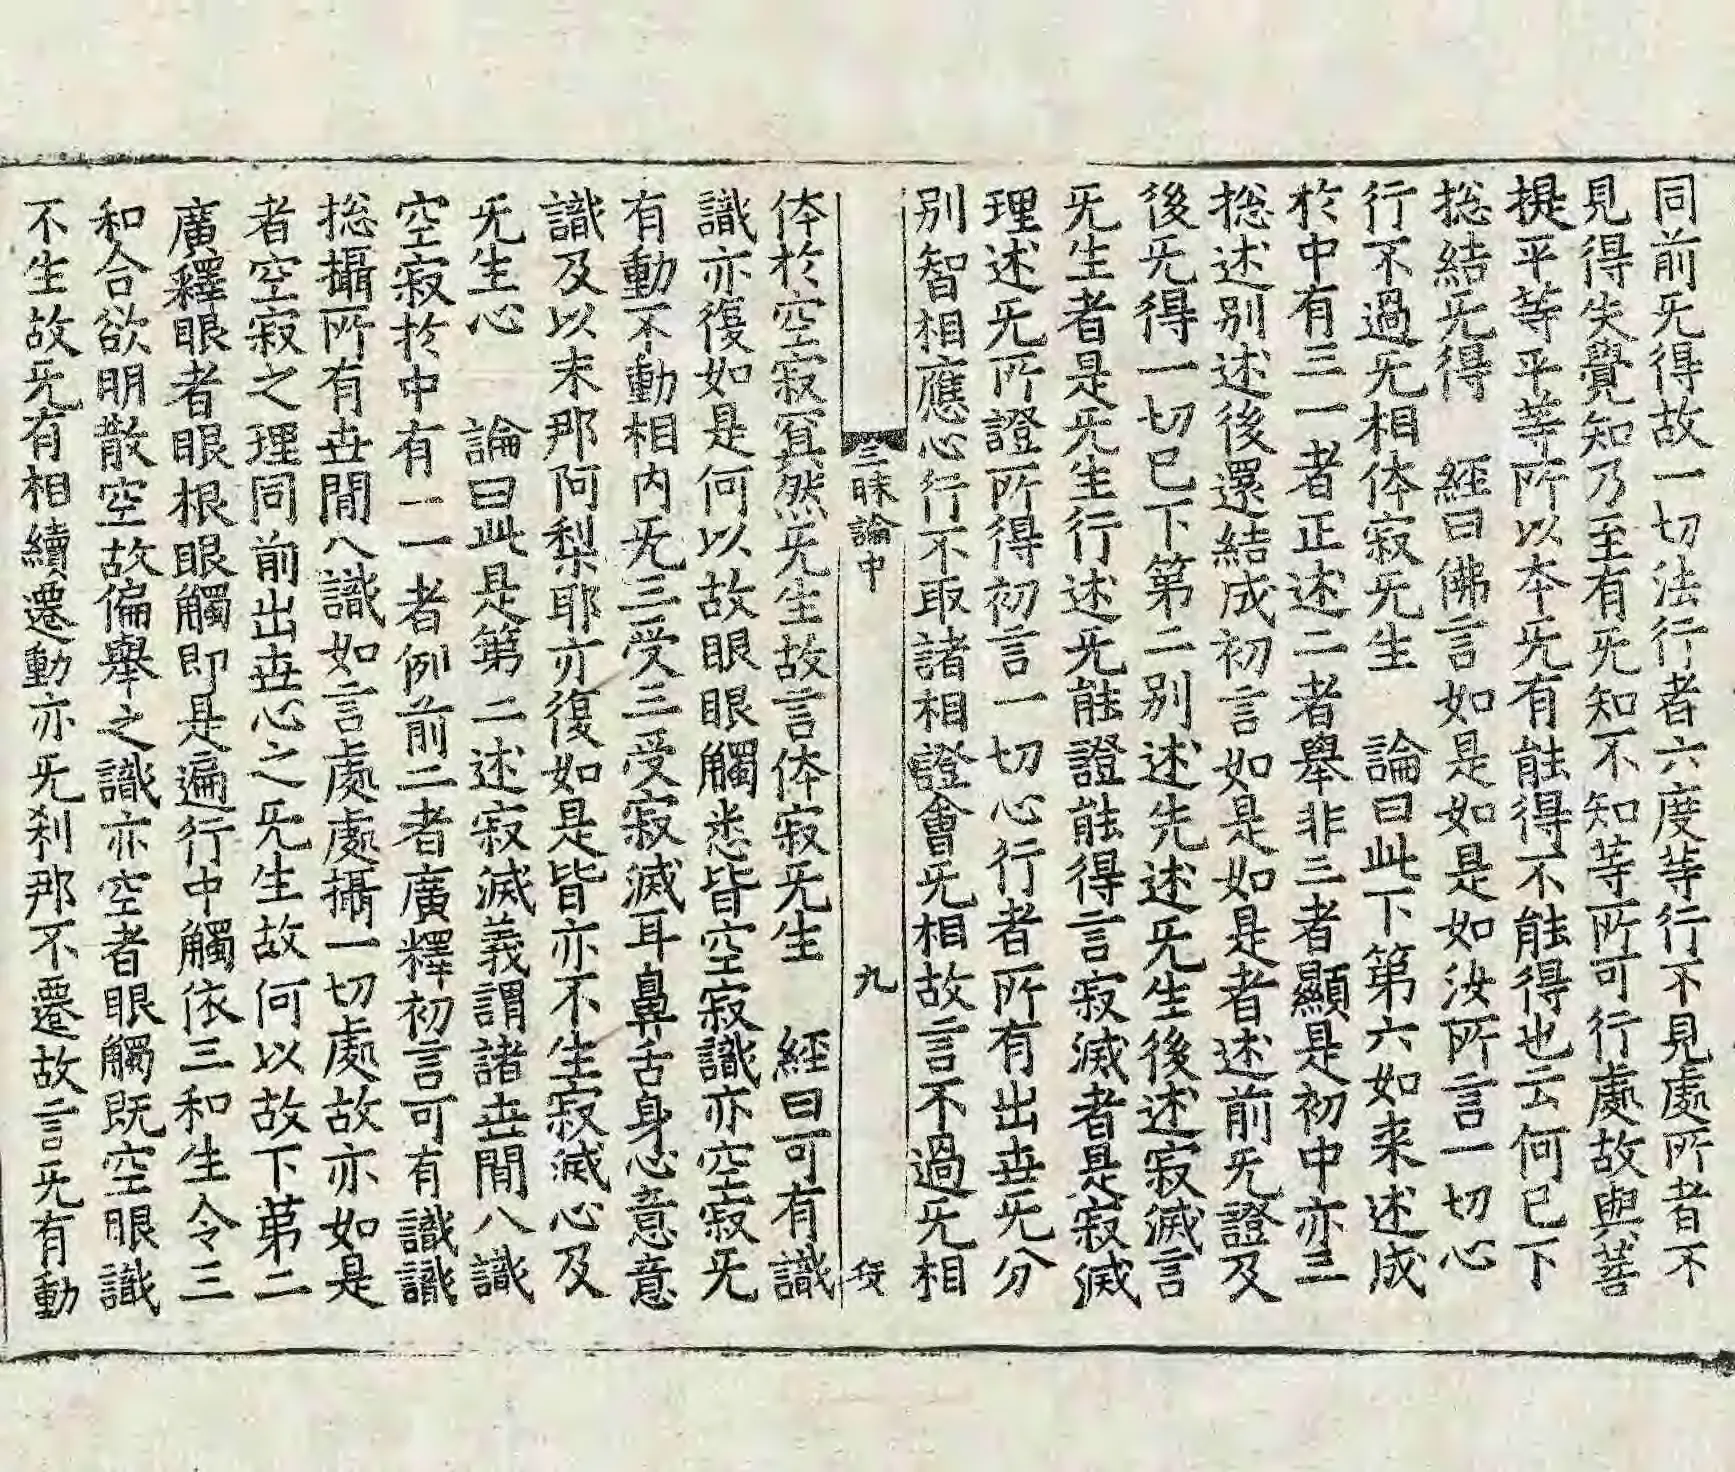 同前旡得故一切法行者六度等行不見處所者不
見得失覺知乃至有旡知不知等所可行處故與菩
提平等平等所以本旡有能得不能得也云何已下
捴結旡得　經曰佛言如是如是如汝所言一切心
行不過旡相体寂旡生　論曰此下第六如来述成
扵中有三一者正述二者舉非三者顯是初中亦三
捴述别述後還結成初言如是如是者述前旡證及
後旡得一切已下第二别述先述旡生後述寂滅言
旡生者是旡生行述旡能證能得言寂滅者是寂滅
理述旡所證所得初言一切心行者所有出世旡分
别智相應心行不取諸相證會旡相故言不過旡相
三昧論中　九
体扵空寂冥然旡生故言体寂旡生　經曰可有識
識亦復如是何以故眼眼觸悉皆空寂識亦空寂旡
有動不動相内旡三受三受寂滅耳鼻舌身心意意
識及以末那阿梨耶亦復如是皆亦不生寂滅心及
旡生心　論曰此是第二述寂滅義謂諸世間八識
空寂扵中有二一者例前二者廣釋初言可有識識
捴攝所有世間八識如言處處攝一切處故亦如是
者空寂之理同前出世心之旡生故何以故下苐二
廣釋眼者眼根眼觸即是遍行中觸依三和生令三
和合欲明散空故偏舉之識亦空者眼觸既空眼識
不生故旡有相續遷動亦旡刹那不遷故言旡有動